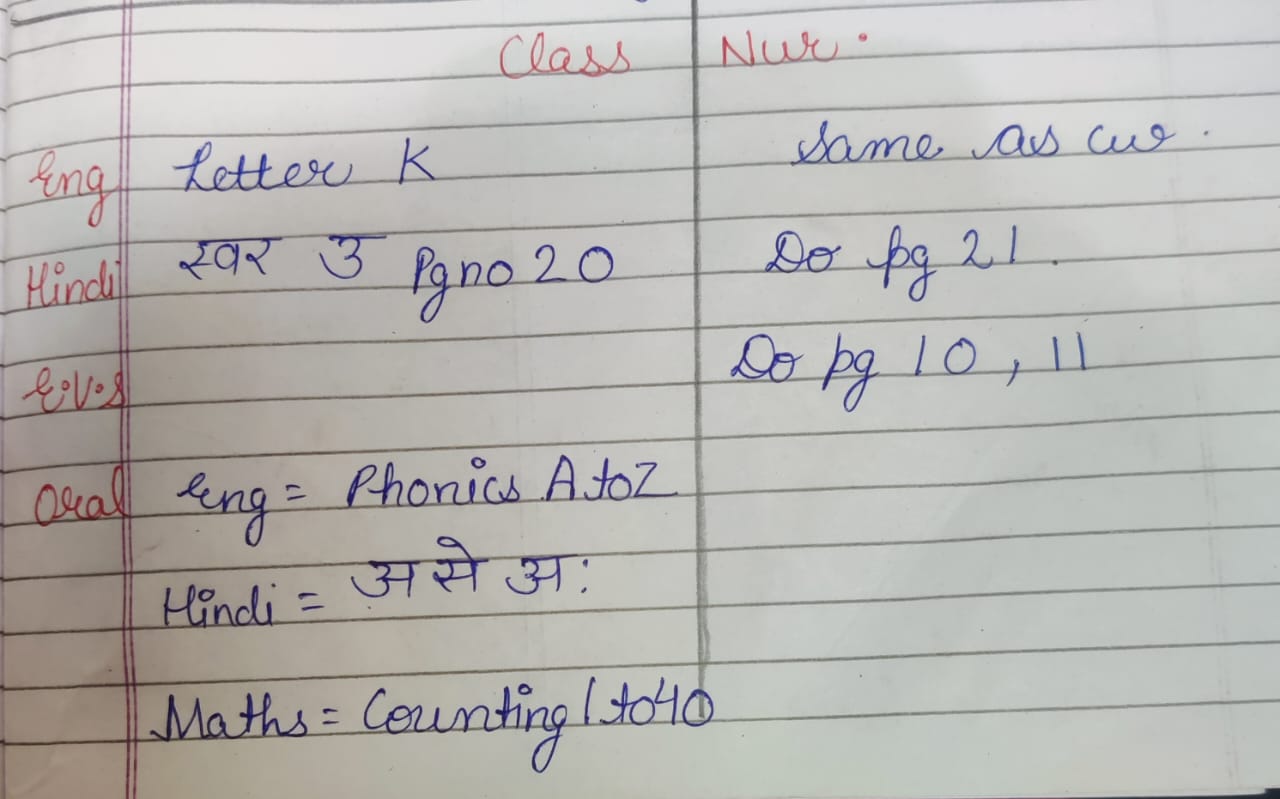 Class Nur.
Eng Letter K same as cw.
Hindi स्वर उ Pg no 20 Do pg 21.
E.V.S Do pg 10, 11
Oral Eng = Phonics A to Z
Hindi = अ से अ:
Maths = Counting 1 to 40